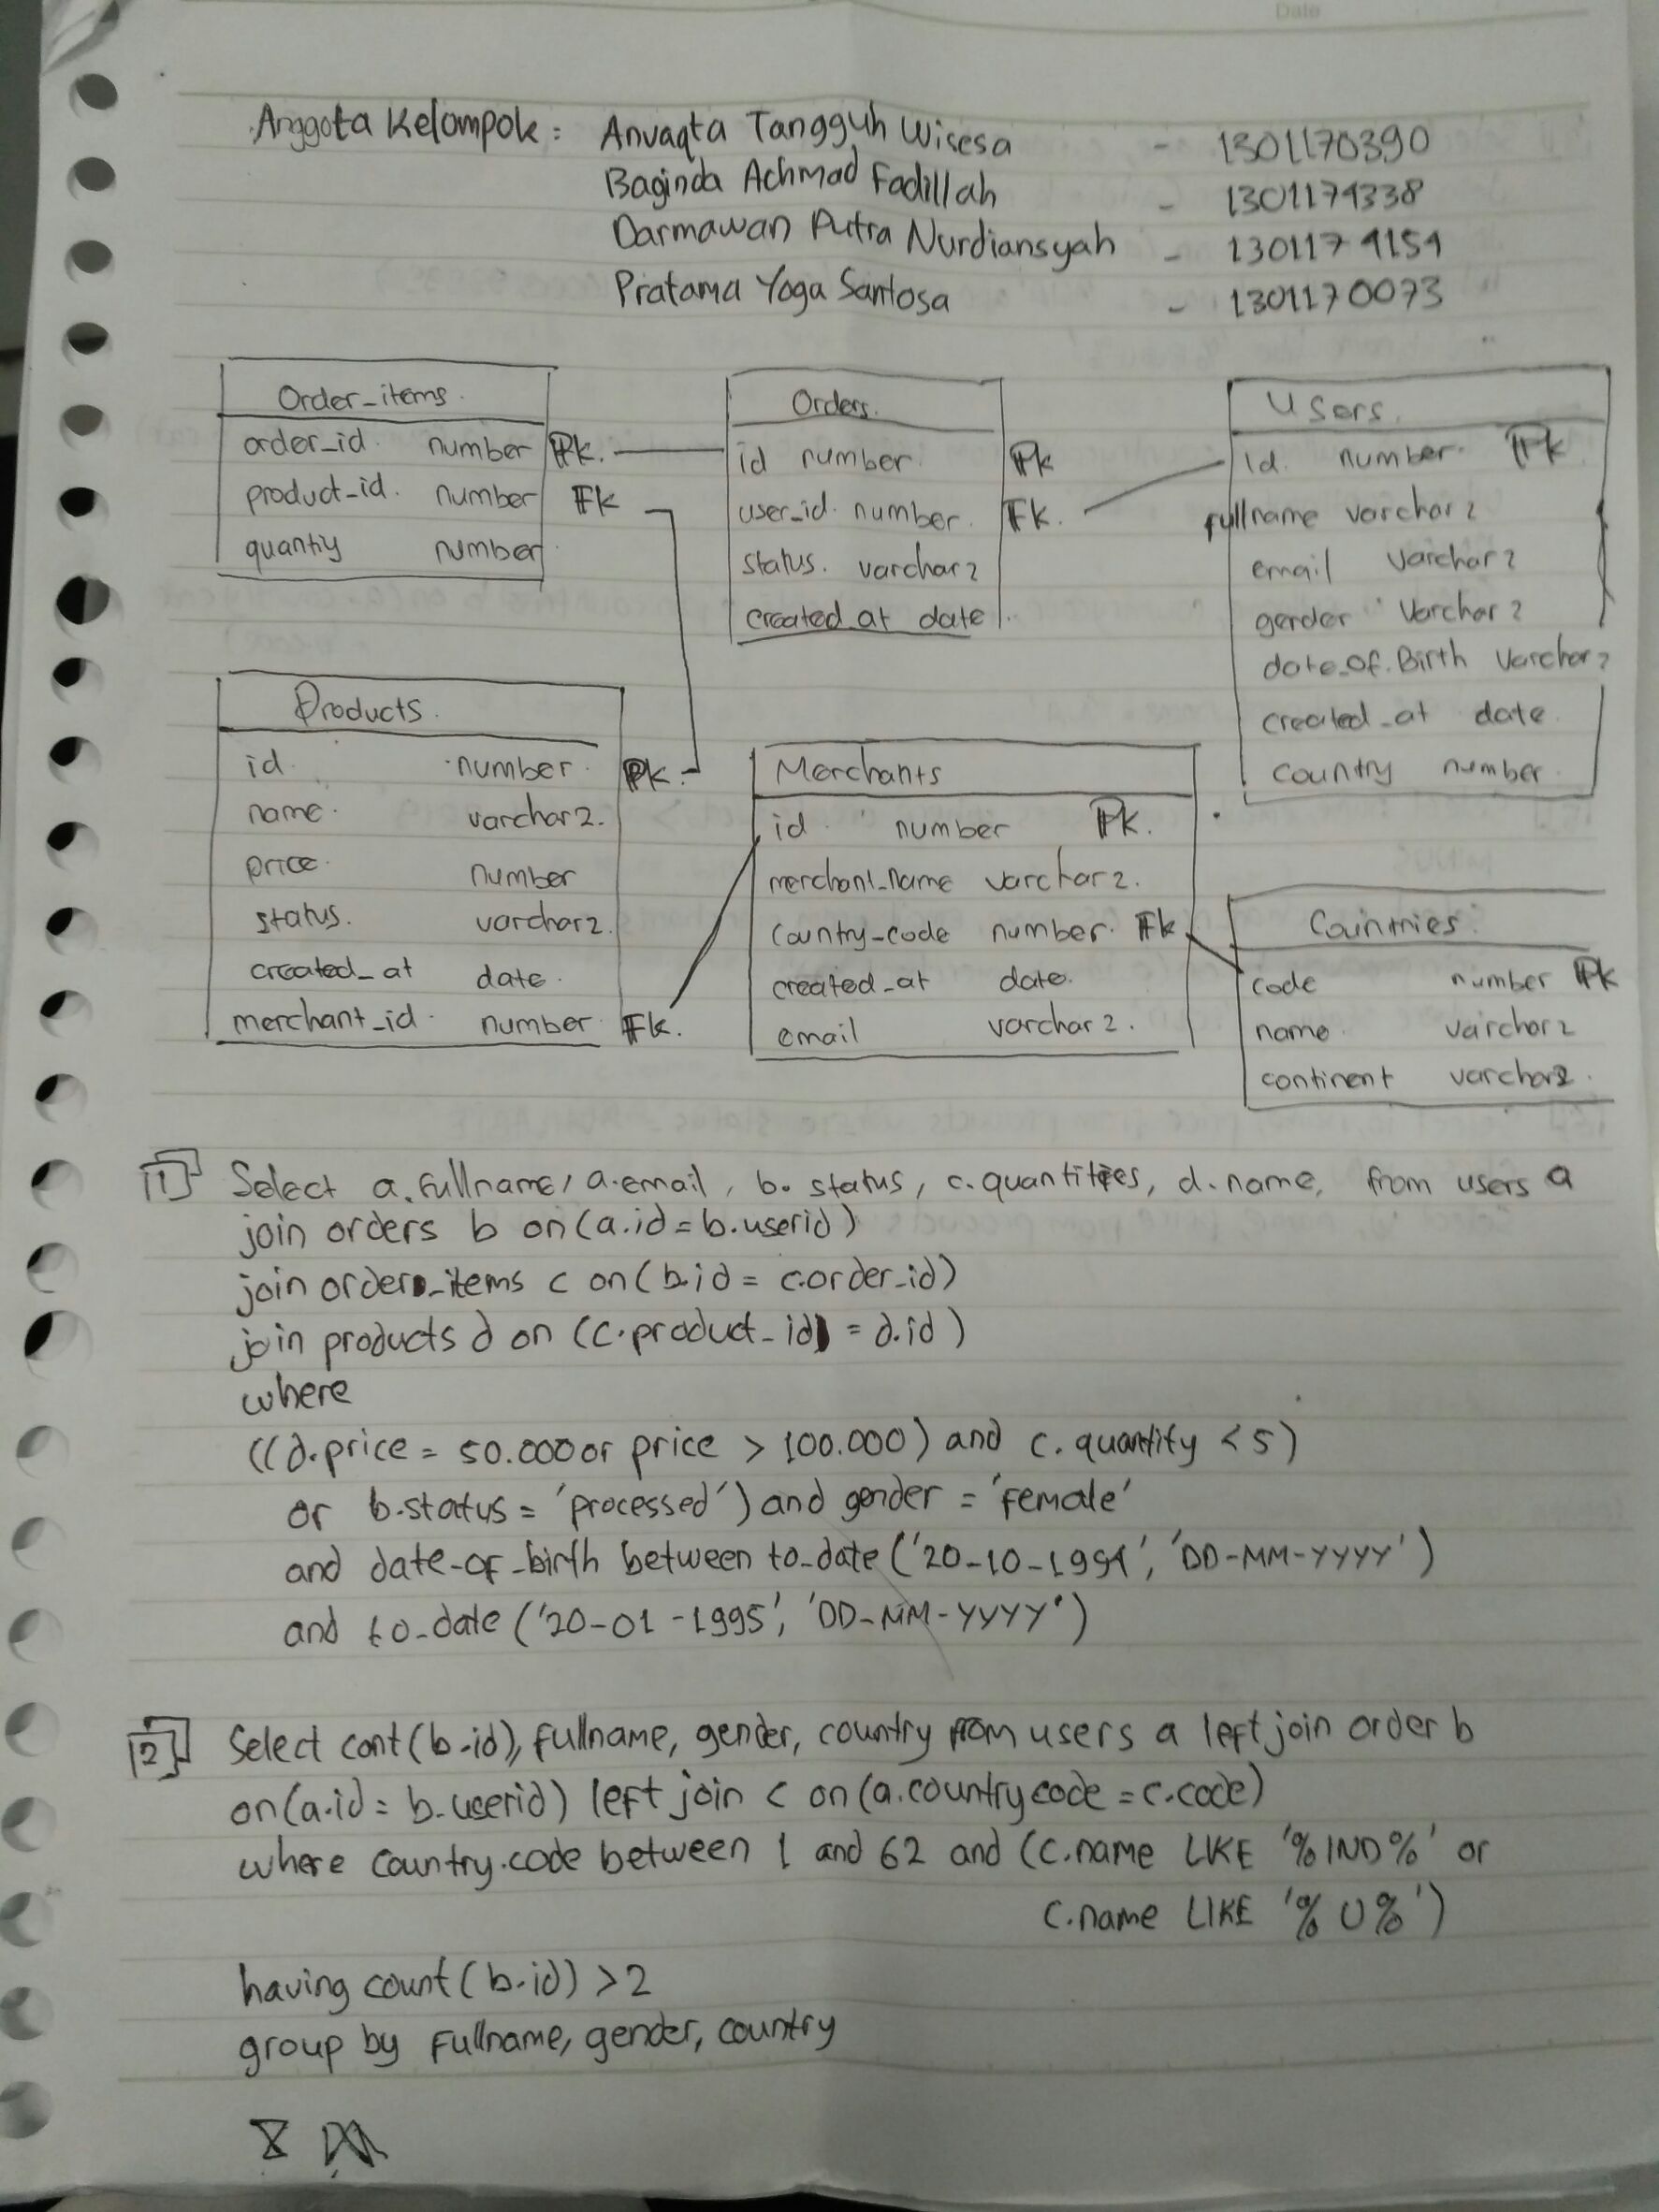 Date
Anggota Kelompok : Anvaqta Tangguh Wisesa - 1301170390
Baginda Achmad Fadillah - 1301174338
Darmawan Putra Nurdiansyah - 1301174154
Pratama Yoga Santosa - 1301170073
Order_items
order_id number Pk
product_id number Fk
quantiy number
Orders
id number Pk
user_id number Fk
status varchar2
created_at date
Users
id number Pk
fullname varchar2
email varchar2
gender varchar2
date_of_Birth varchar2
created_at date
country number
Products
id number Pk
name varchar2
price number
status varchar2
created_at date
merchant_id number Fk
Merchants
id number Pk
merchant_name varchar2
country_code number Fk
created_at date
email varchar2
Countries
code number Pk
name varchar2
continent varchar2
1 Select a.fullname, a.email, b.status, c.quantities, d.name, from users a
join orders b on(a.id = b.userid)
join order_items c on(b.id = c.order_id)
join products d on (c.product_id = d.id)
where
((d.price = 50.000 or price > 100.000) and c.quantity < 5)
or b.status = 'processed') and gender = 'female'
and date_of_birth between to_date('20-10-1994', 'DD-MM-YYYY')
and to_date('20-01-1995', 'DD-MM-YYYY')
2 Select cont(b.id), fullname, gender, country from users a left join order b
on(a.id = b.userid) left join c on (a.countrycode = c.code)
where country.code between 1 and 62 and (c.name LIKE '%IND%' or
c.name LIKE '%U%')
having count(b.id) >2
group by fullname, gender, country